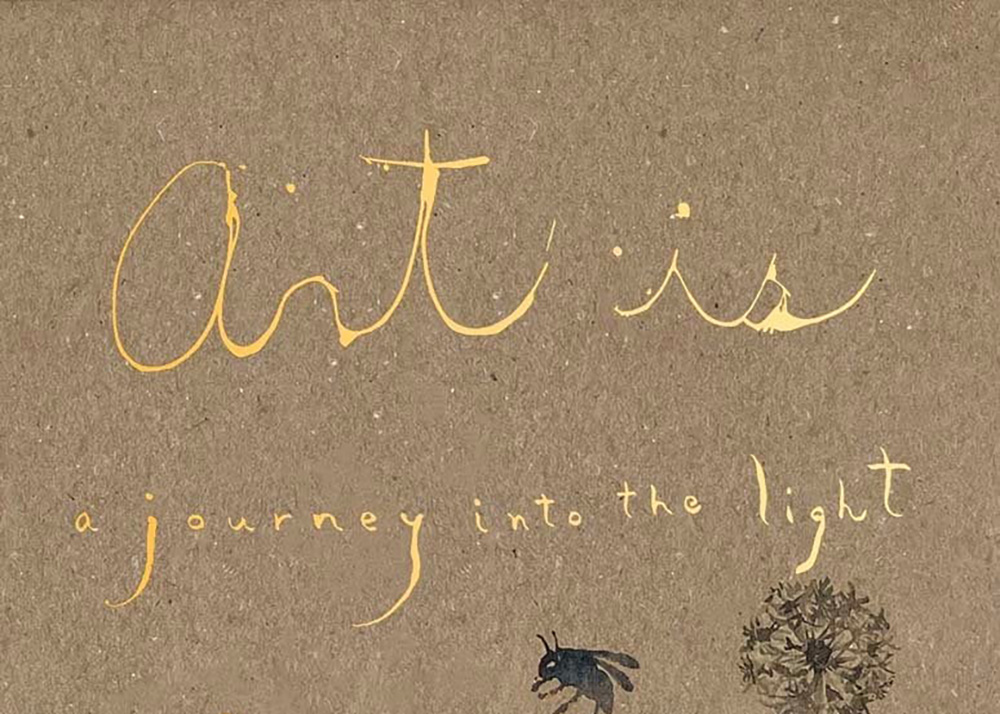 art is
a journey into the light